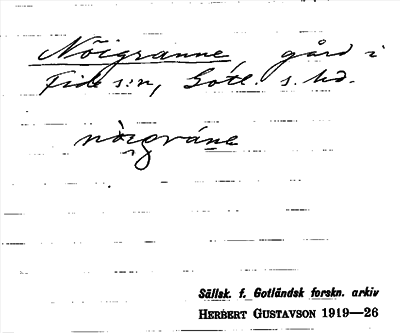 Nöigranne, gård i
Fide s:n, Gotl. s. hd.
nòigráne
Sällsk. f. Gotländsk forskn. arkiv
HERBERT GUSTAVSON 1919—26